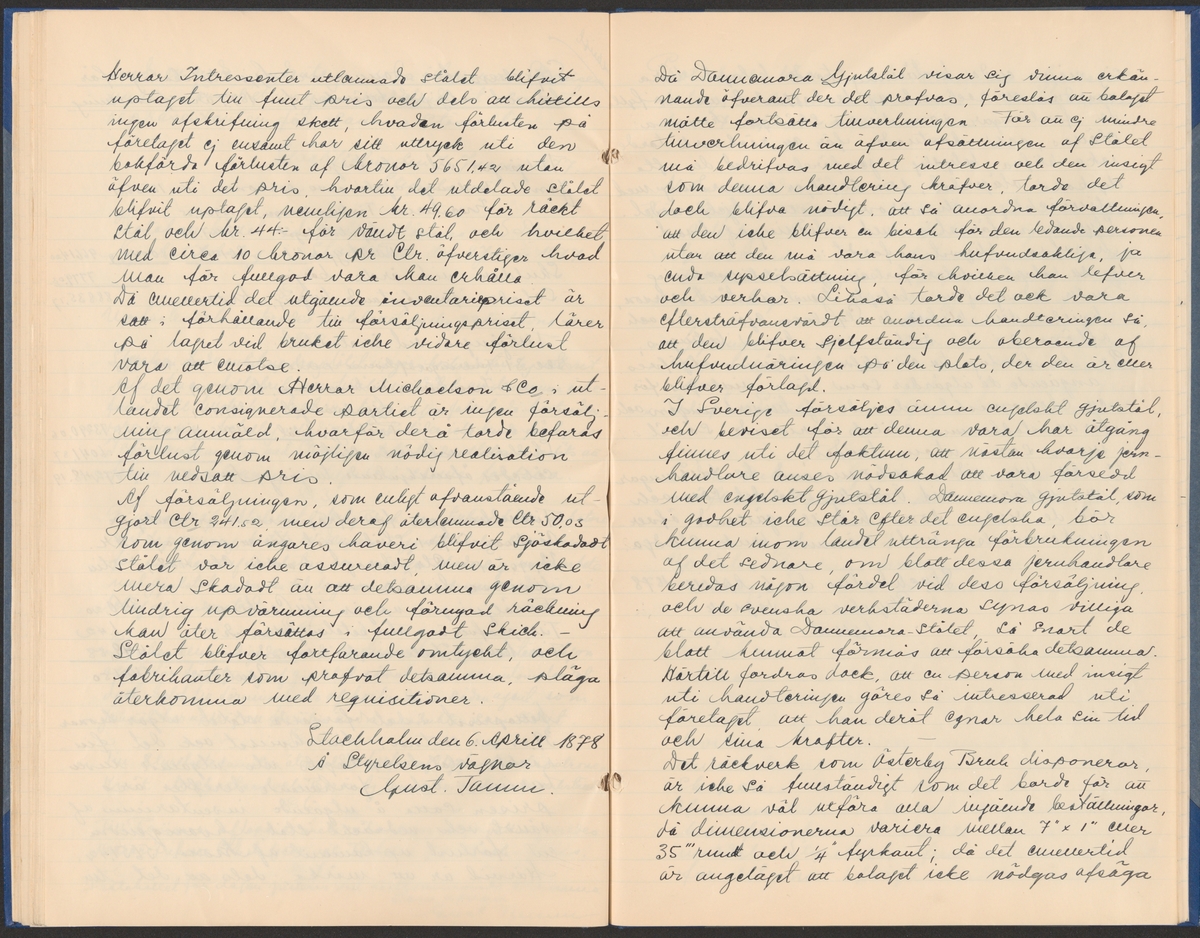 Herrar Intressenter utlemnade stålet blifvit
uptaget till fullt pris och dels att hittills
ingen afskrifning skett, hvadan förlusten på
företaget ej ensamt har sitt uttryck uti den
bokförda förlusten af kronor 5651,42 utan
äfven uti det pris, hvartill det utdelade stålet
blifvit uptaget, nemligen kr. 49,60 för räckt
stål och kr. 44:- för vändt stål, och hvilket
med circa 10 kronor pr Ctr. öfverstiger hvad
man för fullgod vara kan erhålla.
Då emellertid det utgående inventariepriset är
satt i förhållande till försäljningspriset, lärer
på lagret vid bruket icke vidare förlust
vara att emotse.
Af det genom Herrar Michaelson & Co, i ut-
landet consignerade partiet är ingen försälj-
ning anmäld, hvarför derå torde befaras
förlust genom möjligen nödig realisation
till nedsatt pris.
Af försäljningen, som enligt ofvanstående ut-
gjort Ctr 241.52, men deraf återlemnade Ctr 50,03
som genom ångares haveri blifvit sjöskadadt
Stålet var icke assureradt, men är icke
mera skadadt än att detsamma genom
lindrig upvärmning och förnyad räckning
kan åter försättas i fullgodt skick. -
Stålet blifver fortfarande omtyckt, och
fabrikanter som profvat detsamma, pläga
återkomma med requisitioner.
Stockholm den 6. April 1878
Å Styrelsens vägnar
Gust. Tamm.
Då Dannemora Gjutstål visar sig vinna erkän-
nande öfverallt der det profvas, föreslås att bolaget
måtte fortsätta tillverkningen. För att ej mindre
tillverkningen än äfven afsättningen af Stålet
må bedrifvas med det intresse och den insigt
som denna handtering kräfver, torde det
dock blifva nödigt, att så anordna förvaltningen,
att den icke blifver en bisak för den ledande personen
utan att den må vara hans hufvudsakliga, ja
enda sysselsättning, för hvilken han lefver
och verkar. Likaså torde det ock vara
eftersträfvansvärdt att anordna handteringen så,
att den blifver sjelfständig och oberoende af
hufvudnäringen på den plats, der den är eller
blifver förlagd.
I Sverige försäljes ännu engelskt gjutstål,
och beviset för att denna vara har åtgång
finnes uti det faktum, att nästan hvarje jern-
handlare anses nödsakad att vara försedd
med engelskt gjutstål. Dannemora gjutstål, som
i godhet icke står efter det engelska, bör
kunna inom landet uttränga förbrukningen
af det sednare, om blott dessa jernhandlare
beredas någon fördel vid dess försäljning,
och de svenska verkstäderna synas villiga
att använda Dannemora-Stålet, så snart de
blott hunnit förmås att försöka detsamma.
Härtill fordras dock, att en person med insigt
uti handteringen göres så intresserad uti
företaget att han deråt egnar hela sin tid
och sina krafter.
Det räckverk som Österby Bruk disponerar,
är icke så fullständigt som det borde för att
kunna väl utföra alla ingående beställningar,
då dimensionerna variera mellan 7" x 1" eller
35''' rundt och 1/4" fyrkant; då det emellertid
är angeläget att bolaget icke nödgas afsäga